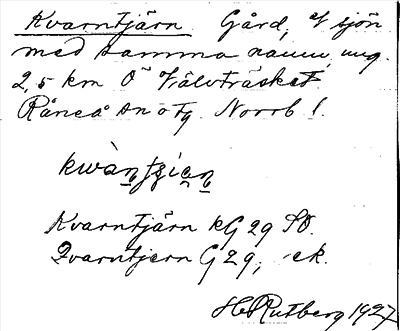 Kvarntjärn. Gård, v sjön
med samma namn, ung.
2,5 km Ö Hälvträsket.
Råneå sn o tg. Norrb l.
Kvarntjärn kG 29 SO.
Qvarntjern G 29, -ek.
H. Rutberg 1927